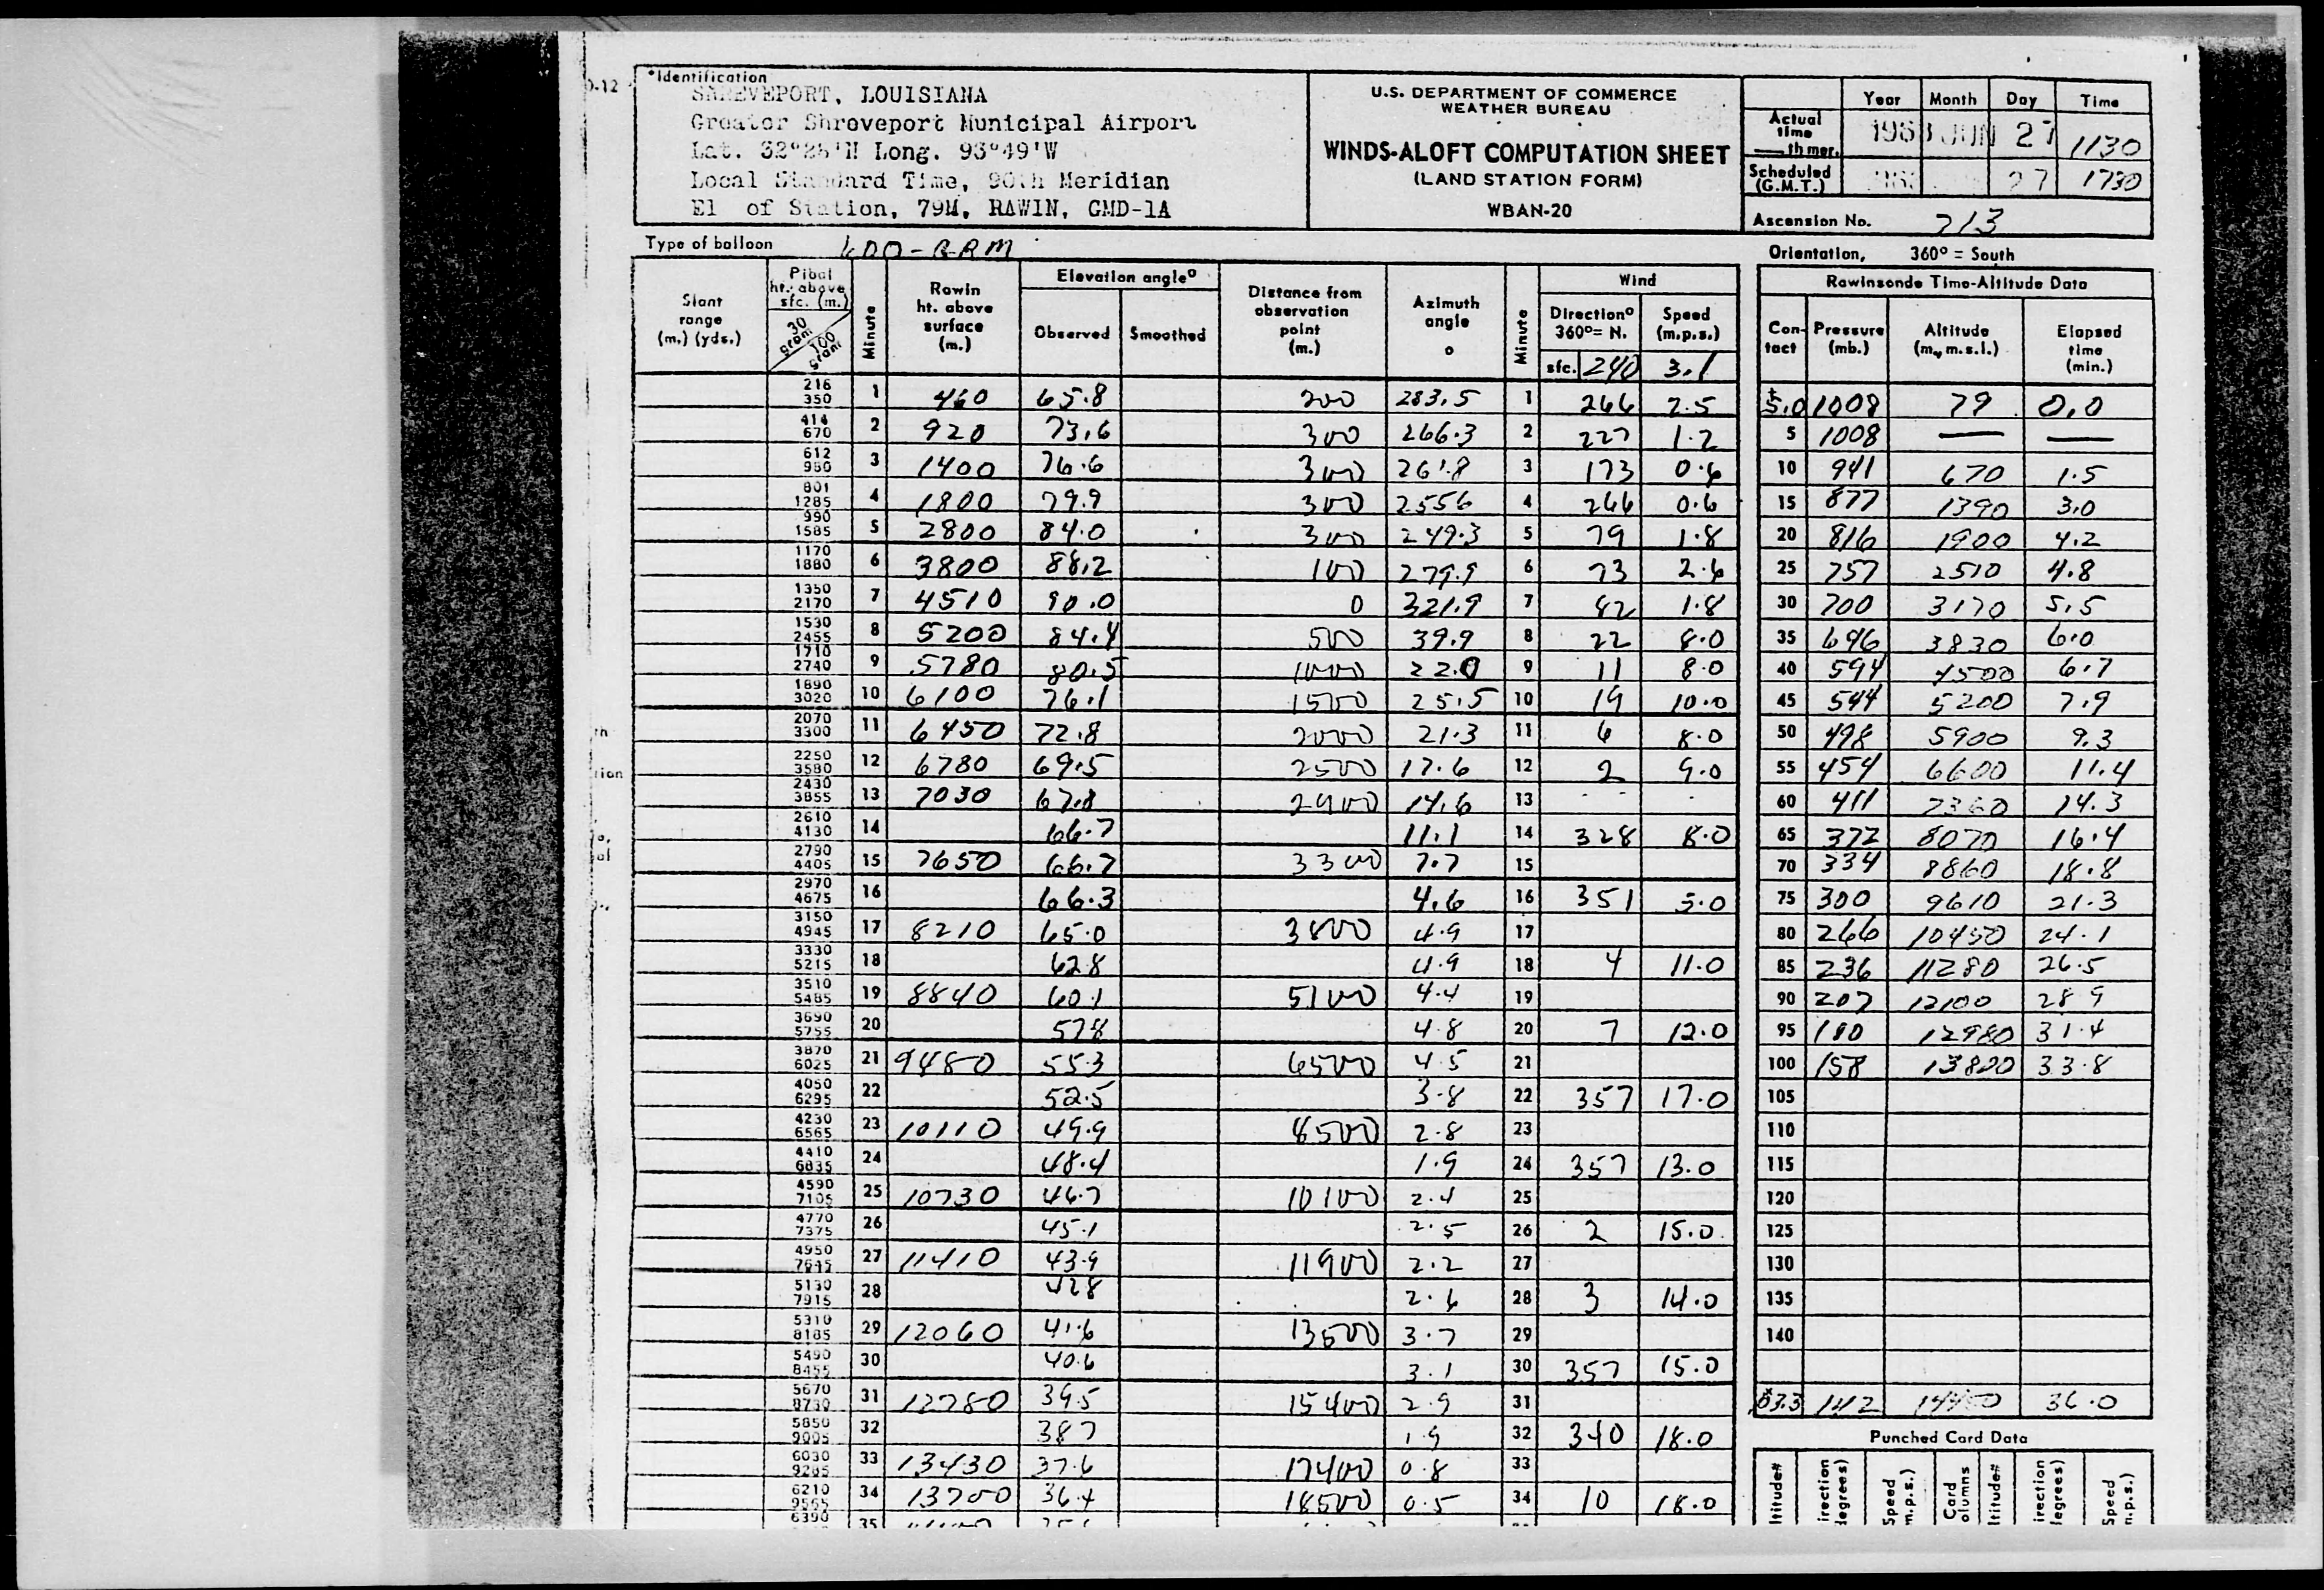 0-12
*Identification
SHREVEPORT, LOUISIANA
Greater Shreveport Municipal Airport
Lat. 32°28'N Long. 93°49'W
Local Standard Time, 90th Meridian
El of Station, 79M, RAWIN, GMD-1A
U.S. DEPARTMENT OF COMMERCE
WEATHER BUREAU
WINDS-ALOFT COMPUTATION SHEET
(LAND STATION FORM)
WBAN-20
Year Month Day Time
Actual time th mer. 1963 JUN 27 1130
Scheduled (G.M.T.) 27 1730
Ascension No. 713
Type of balloon 600-GRAM
Orientation, 360° = South
Slant range (m.) (yds.)
Pibal ht. above sfc. (m.) 30 gram 100 gram
Minute
Rawin ht. above surface (m.)
Elevation angle° Observed Smoothed
Distance from observation point (m.)
Azimuth angle °
Minute
Wind Direction° 360°= N. Speed (m.p.s.)
sfc. 240 3.1
216 350 1 460 65.8 200 283.5 1 266 2.5
414 670 2 920 73.6 300 266.3 2 227 1.2
612 980 3 1400 76.6 300 261.8 3 173 0.6
801 1285 4 1800 79.9 300 2556 4 266 0.6
990 1585 5 2800 84.0 300 249.3 5 79 1.8
1170 1880 6 3800 88.2 100 279.9 6 73 2.6
1350 2170 7 4510 90.0 0 321.9 7 42 1.8
1530 2455 8 5200 84.4 500 39.9 8 22 8.0
1710 2740 9 5780 80.5 1000 22.0 9 11 8.0
1890 3020 10 6100 76.1 1500 25.5 10 19 10.0
2070 3300 11 6450 72.8 2000 21.3 11 6 8.0
2250 3580 12 6780 69.5 2500 17.6 12 2 9.0
2430 3855 13 7030 67.8 2900 14.6 13
2610 4130 14 66.7 11.1 14 328 8.0
2790 4405 15 7650 66.7 3300 7.7 15
2970 4675 16 66.3 4.6 16 351 5.0
3150 4945 17 8210 65.0 3800 4.9 17
3330 5215 18 628 4.9 18 4 11.0
3510 5485 19 8840 60.1 5100 4.4 19
3690 5755 20 578 4.8 20 7 12.0
3870 6025 21 9480 55.3 6500 4.5 21
4050 6295 22 52.5 3.8 22 357 17.0
4230 6565 23 10110 49.9 8500 2.8 23
4410 6835 24 48.4 1.9 24 357 13.0
4590 7105 25 10730 46.7 10100 2.4 25
4770 7375 26 45.1 2.5 26 2 15.0
4950 7645 27 11410 43.9 11900 2.2 27
5130 7915 28 428 2.6 28 3 14.0
5310 8185 29 12060 41.6 13500 3.7 29
5490 8455 30 40.6 3.1 30 357 15.0
5670 8730 31 12780 39.5 15400 2.9 31
5850 9005 32 387 1.9 32 340 18.0
6030 9285 33 13430 37.6 17400 0.8 33
6210 9565 34 13700 36.4 18500 0.5 34 10 18.0
6390 35
Rawinsonde Time-Altitude Data
Contact Pressure (mb.) Altitude (m., m.s.l.) Elapsed time (min.)
5.0 1008 79 0.0
5 1008 — —
10 941 670 1.5
15 877 1390 3.0
20 816 1900 4.2
25 757 2510 4.8
30 700 3170 5.5
35 646 3830 6.0
40 594 4500 6.7
45 544 5200 7.9
50 498 5900 9.3
55 454 6600 11.4
60 411 7360 14.3
65 372 8070 16.4
70 334 8860 18.8
75 300 9610 21.3
80 266 10450 24.1
85 236 11280 26.5
90 207 12100 28 9
95 180 12980 31.4
100 158 13800 33.8
105
110
115
120
125
130
135
140
142 36.0
Punched Card Data
ltitude#
irection degrees)
Speed m.p.s.)
Card olumns
ltitude#
irection legrees)
Speed n.p.s.)
th
tion